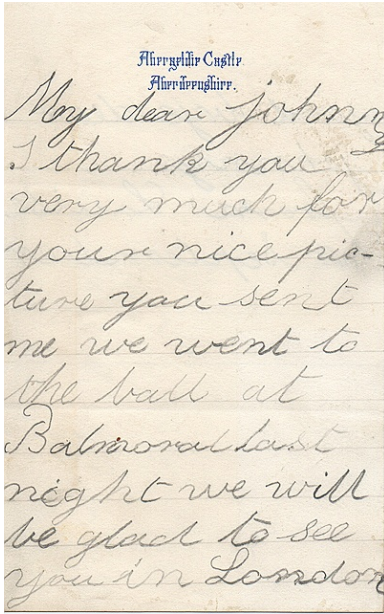 Abergeldie Castle
Aberdeenshire.
My dear Johnny
I thank you
very much for
your nice pic-
ture you sent
me we went to
the ball at
Balmoral last
night we will
be glad to see
you in London